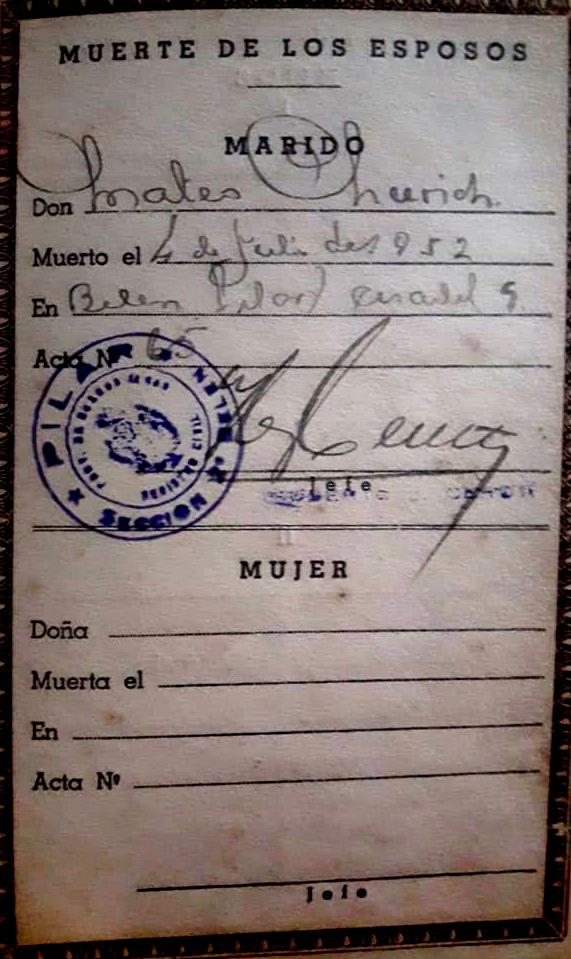 MUERTE DE LOS ESPOSOS
MARIDO
Don Mateo Churich.
Muerto el 4 de Julio de 1952
En Belen Pilar cuartel 9
Acta Nº 65
PILAR BELEN
PROV. DE BUENOS AIRES REGISTRO CIVIL
SECCION
Jefe
MUJER
Doña
Muerta el
En
Acta Nº
Jefe